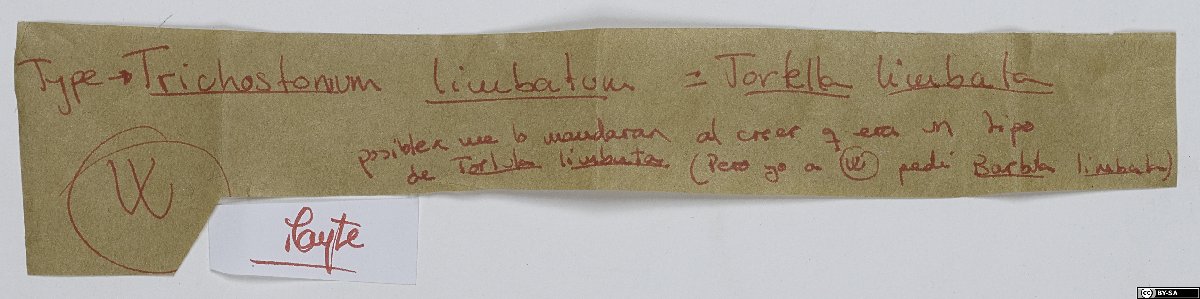 Type → Trichostomum limbatum = Tortella limbata
posiblem me lo mandaran al creer q era un tipo
de Tortula limbata (Pero yo a W pedi Barbula limbata)
W
CC BY-SA